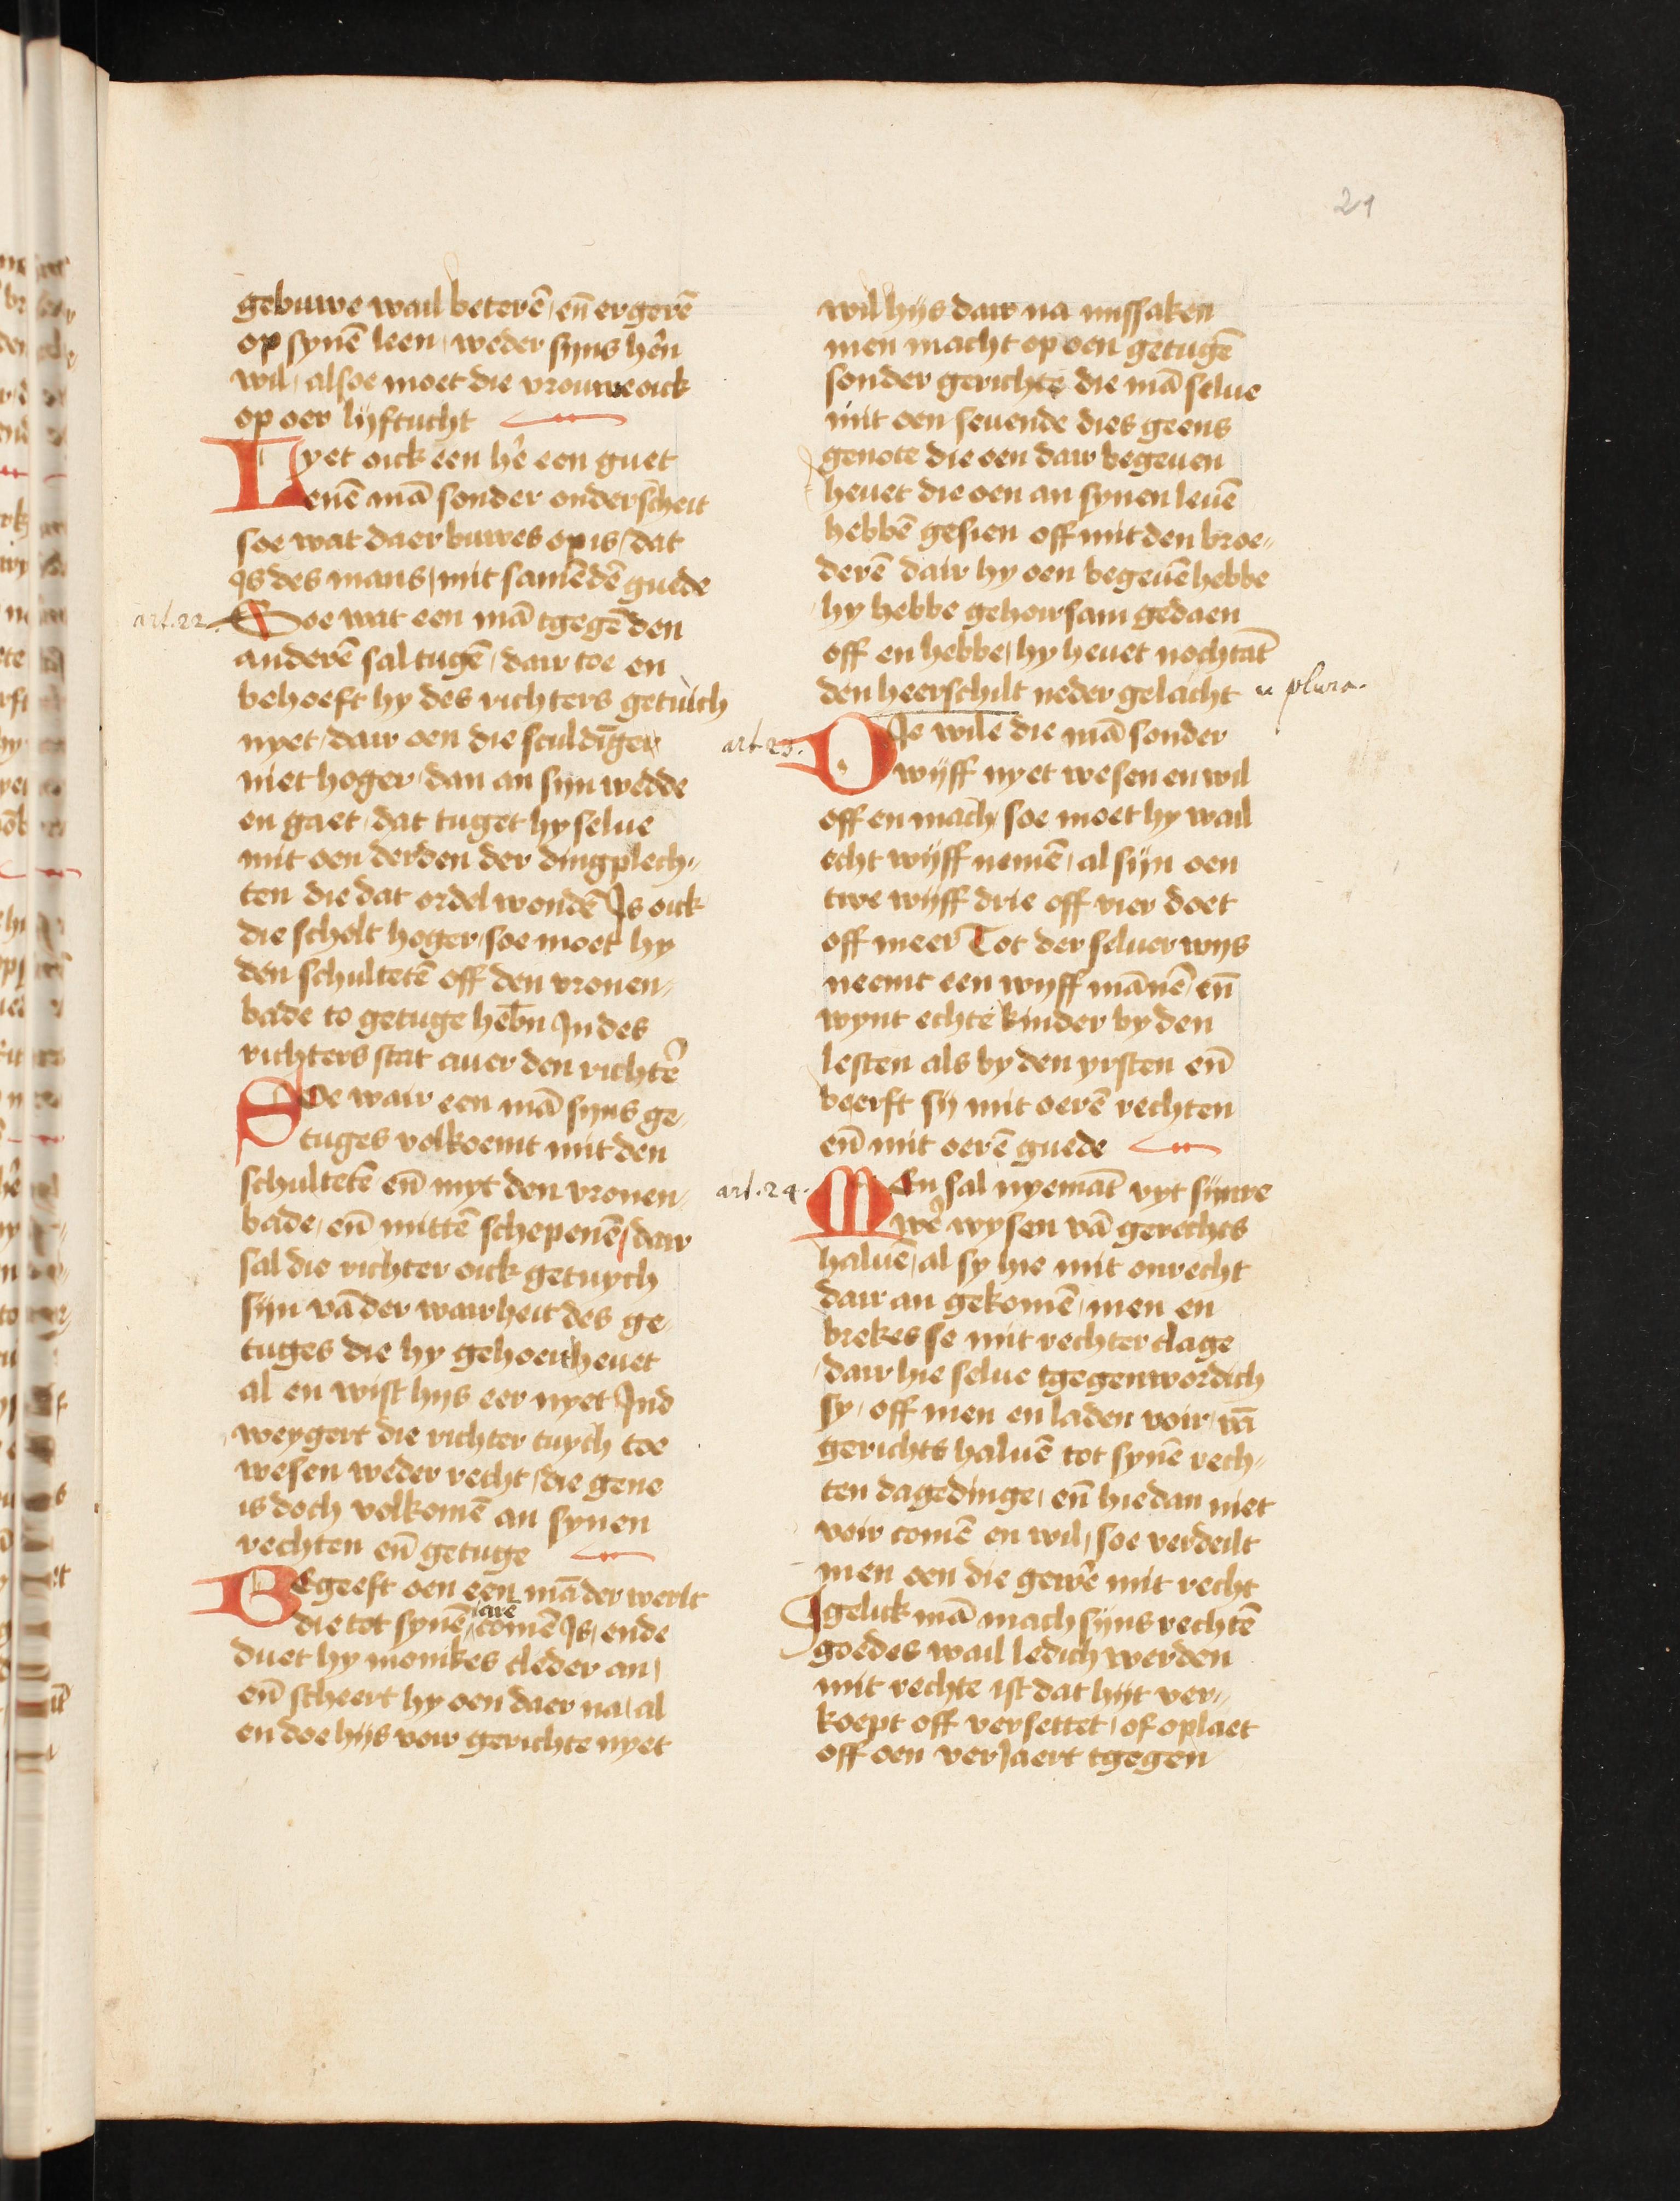 21
gebuwe wail beterē / en̄ ergerē
op synē leen / weder syns hr̄n
wil / alsoe moet die vrouwe oick
op oer lijftucht
Lyet oick een hr̄e een guet
enē mā sonder onderscheit
soe wat daer buwes op is / dat
Is des mans / mit samēdē guede
art. 22.
Soe wat een mā tgegē den
anderē sal tugē / dair toe en
behoeft hy des richters getuich
nyet / dair oen die sculdiger
niet hoger / dan an sijn wedde
en gaet / dat tuget hy selue
mit oen derden der dingplech-
ten die dat ordel wondē Is oick
die scholt hoger / soe moet hy
den schultetē off den vronen-
bade to getuge hebn̄ In des
richters stat auer den richtē
Soe wair een mā syns ge-
tuges volkoemt mit den
schultetē en̄ myt den vronen-
bade / en̄ mittē schepenē / dair
sal die richter oick getuych
sijn vā der wairheit des ge-
tuges die hy gehoert heuet
al en wist hijs eer nyet Ind
weygert die richter tuych toe
wesen weder recht / die gene
is doch volkomē an synen
rechten en̄ getuge
Begeeft oen een mā der werlt
die tot synē iarē comē Is / ende
duet hy monikes cleder an /
en̄ scheert hy oen daer na / al
en doe hijs voir gerichte nyet
wil hijs dair na missaken
men macht op oen getugē
sonder gerichte die mā selue
mit oen seuende dies geens
genote die oen dair begeuen
heuet die oen an synen leuē
hebbē gesien off mit den broe-
derē dair hy oen begeuē hebbe
hy hebbe gehoirsam gedaen
off en hebbe / hy heuet nochtāt
den heerschilt neder gelacht
u plura.
art 23.
Die wile die mā sonder
wijff nyet wesen en wil
off en mach / soe moet hy wail
echt wijff nemē / al sijn oen
twe wijff drie off vier doet
off meer Tot der seluer wijs
neemt een wijff mānē / en̄
wynt echte kinder by den
lesten als by den yrsten en̄
beerft sij mit oerē rechten
en̄ mit oerē guede
art. 24.
Men sal nyemāt vyt sijnre
werē wysen vā gerechts
haluē / al sy hie mit onrecht
dair an gekomē / men en
brekes se mit rechter clage
dair hie selue tgegenwordich
sy / off men en laden voir / vā
gerichts haluē tot synē rech-
ten dagedinge / en̄ hie dan niet
voir comē en wil / soe verdeilt
men oen die gewē mit recht
Igelick mā mach sijns rechtē
goedes wail ledich werden
mit rechte ist dat hijt ver-
koept off versettet / of oplaet
off oen verIaert tgegen